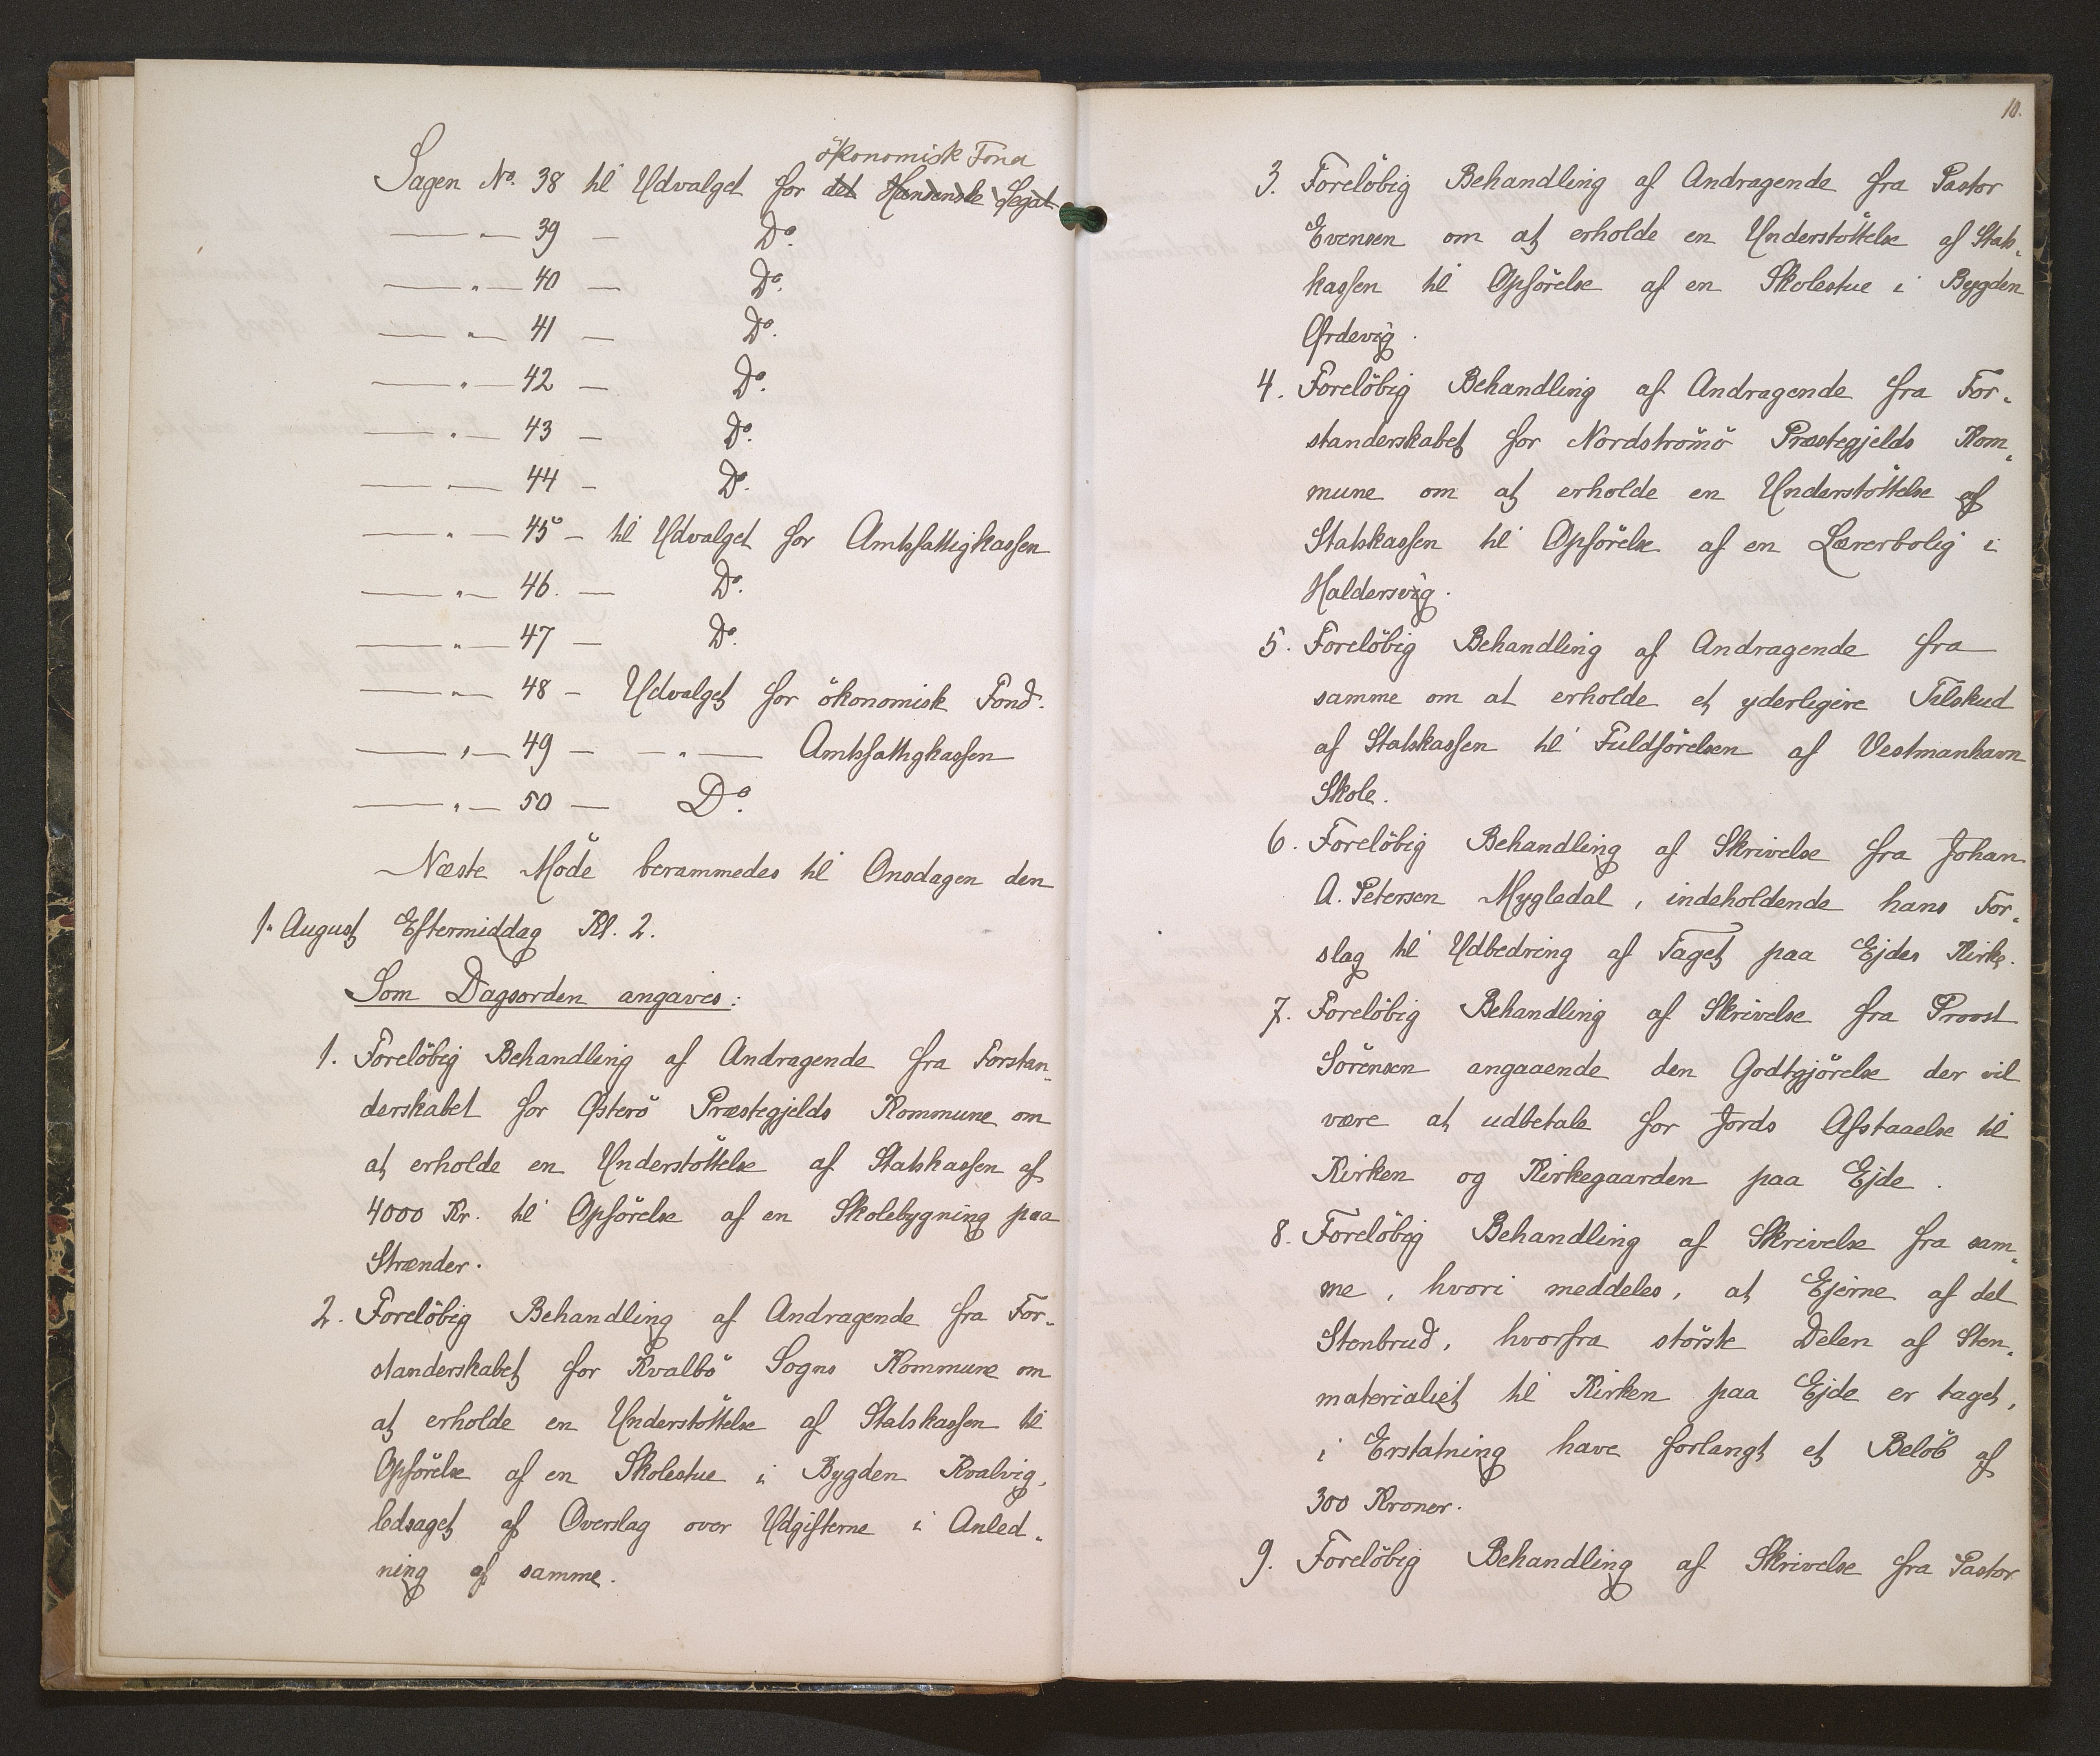 ökonomisk Fond
Sagen No. 38 til Udvalget for det Hansenske Legat
— „ — 39 — Do.
— „ — 40 — Do.
— „ — 41 — Do.
— „ — 42 — Do.
— „ — 43 — Do.
— „ — 44 — Do.
— „ — 45 — til Udvalget for Amtsfattigkassen
— „ — 46. — Do.
— „ — 47 — Do.
— „ — 48 — Udvalget for ökonomisk Fond.
— „ — 49 — — „ — Amtsfattigkassen
— „ — 50 — Do.
Næste Möde berammedes til Onsdagen den
1. August Eftermiddag Kl. 2.
Som Dagsorden angaves:
1. Forelöbig Behandling af Andragende fra Forstan-
derskabet for Østerö Præstegjelds Kommune om
at erholde en Understöttelse af Statskassen af
4000 Kr. til Opförelse af en Skolebygning paa
Strænder.
2. Forelöbig Behandling af Andragende fra For-
standerskabet for Kvalbö Sogns Kommune om
at erholde en Understöttelse af Statskassen til
Opförelse af en Skolestue i Bygden Kvalvig,
ledsaget af Overslag over Udgifterne i Anled-
ning af samme.
10.
3. Forelöbig Behandling af Andragende fra Pastor
Evensen om at erholde en Understöttelse af Stats-
kassen til Opförelse af en Skolestue i Bygden
Ørdevig.
4. Forelöbig Behandling af Andragende fra For-
standerskabet for Nordströmö Præstegjelds Kom-
mune om at erholde en Understöttelse af
Statskassen til Opförelse af en Lærerbolig i
Haldersvig.
5. Forelöbig Behandling af Andragende fra
samme om at erholde et yderligere Tilskud
af Statskassen til Fuldförelsen af Vestmanhavn
Skole.
6. Forelöbig Behandling af Skrivelse fra Johan
A. Petersen Mygledal, indeholdende hans For-
slag til Udbedring af Taget paa Ejdes Kirke.
7. Forelöbig Behandling af Skrivelse fra Provst
Sörensen angaaende den Godtgjörelse der vil
være at udbetale for Jords Afstaaelse til
Kirken og Kirkegaarden paa Ejde.
8. Forelöbig Behandling af Skrivelse fra sam-
me, hvori meddeles, at Ejerne af det
Stenbrud, hvorfra störste Delen af Sten-
materialiet til Kirken paa Ejde er taget,
i Erstatning have forlangt et Belöb af
300 Kroner.
9. Forelöbig Behandling af Skrivelse fra Pastor